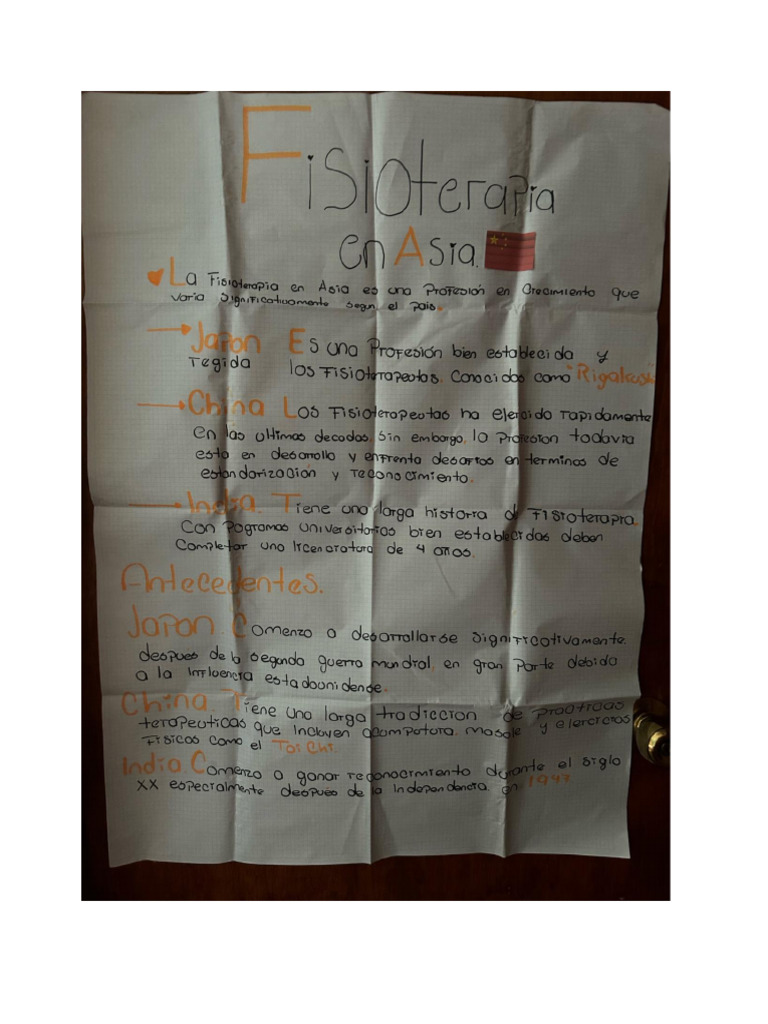 Fisioterapia
en Asia.
La Fisioterapia en Asia es una Profesión en Crecimiento que
varia significativamente segun el pais.
Japon Es una Profesión bien establecida y
regida los Fisioterapeutas. Conocidos como "Rigakushi
China Los Fisioterapeutas ha ejercido rapidamente
en las ultimas decadas. Sin embargo, la Profesion todavia
esta en desarrollo y enfrenta desafios en terminos de
estandarización y reconocimiento.
India. Tiene una larga historia d Fisioterapia.
Con Pogramas universitarios bien establecidas deben
Completar una licenciatura de 4 años.
Antecedentes.
Japon. Comenzo a desarrollarse significativamente.
despues de la segunda guerra mundial, en gran Parte debido
a la influencia estadounidense.
China. Tiene una larga tradiccion de practicas
terapeuticas que incluyen acumpotora. masaje y ejercicios
Fisicos como el Tai Chi.
India. Comenzo a ganar reconocimiento durante el siglo
XX especialmente despues de la Independencia. en 1947.